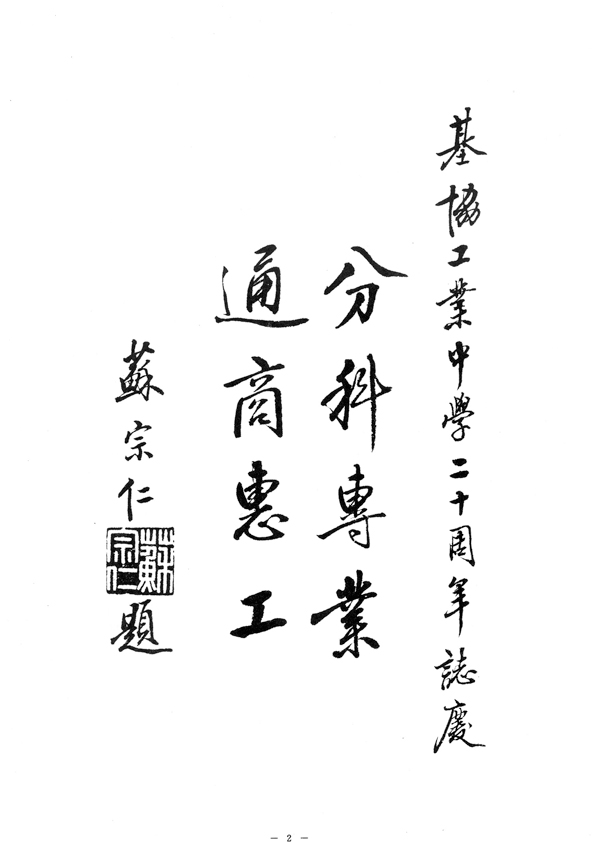 基協工業中學二十周年誌慶
分科專業
通商惠工
蘇宗仁題
蘇宗仁
— 2 —